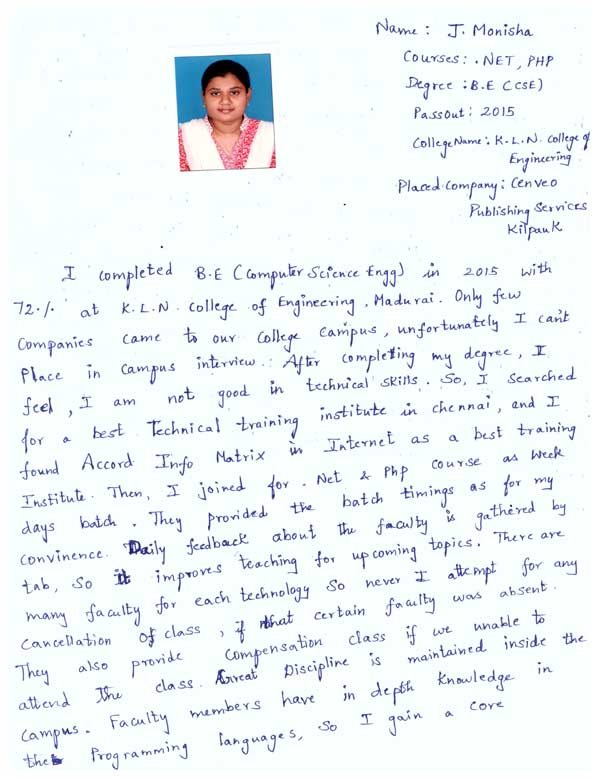 Name: J. Monisha
Courses: .NET, PHP
Degree: B.E (CSE)
Passout: 2015
College Name: K.L.N. College of
Engineering
Placed Company: Cenveo
Publishing Services
Kilpauk
I completed B.E (Computer Science Engg) in 2015 with
72.% at K.L.N. College of Engineering. Madurai. Only few
Companies came to our College Campus, unfortunately I can't
Place in Campus interview. After completing my degree, I
feel, I am not good in technical skills. So, I searched
for a best Technical training institute in chennai, and I
found Accord Info Matrix in Internet as a best training
Institute. Then, I joined for .Net & Php Course as Week
days batch. They provided the batch timings as for my
Convinence. Daily feedback about the faculty is gathered by
tab, So it improves teaching for upcoming topics. There are
many faculty for each technology So never I attempt for any
Cancellation of class, if that certain faculty was absent.
They also provide Compensation class if we unable to
attend the class. Great Discipline is maintained inside the
Campus. Faculty members have in depth Knowledge in
the Programming languages, So I gain a core